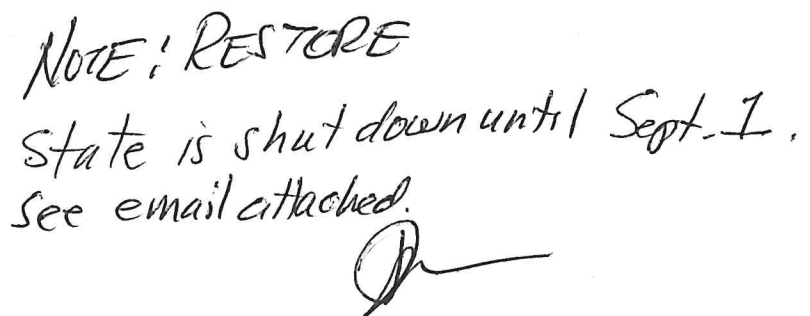 NOTE: RESTORE
State is shut down until Sept. 1.
See email attached.